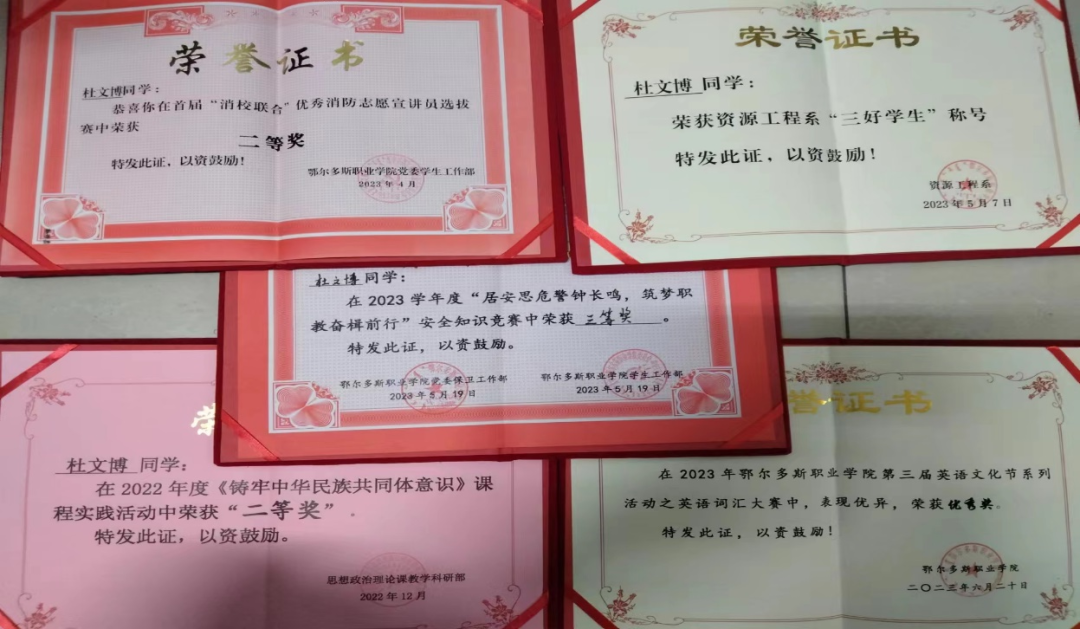 荣誉证书
杜文博同学：
恭喜你在首届“消校联合”优秀消防志愿宣讲员选拔
赛中荣获
二等奖
特发此证，以资鼓励！
鄂尔多斯职业学院党委学生工作部
2023年4月
荣誉证书
杜文博 同学：
荣获资源工程系“三好学生”称号
特发此证，以资鼓励！
资源工程系
2023年5月7日
杜文博同学：
在2023学年度“居安思危警钟长鸣，筑梦职
教奋楫前行”安全知识竞赛中荣获 三等奖 。
特发此证，以资鼓励。
鄂尔多斯职业学院党委保卫工作部
2023年5月19日
鄂尔多斯职业学院学生工作部
2023年5月19日
荣
杜文博 同学：
在2022年度《铸牢中华民族共同体意识》课
程实践活动中荣获“二等奖”。
特发此证，以资鼓励。
思想政治理论课教学科研部
2022年12月
誉证书
在2023年鄂尔多斯职业学院第三届英语文化节系列
活动之英语词汇大赛中，表现优异，荣获优秀奖。
特发此证，以资鼓励！
鄂尔多斯职业学院
二〇二三年六月二十日